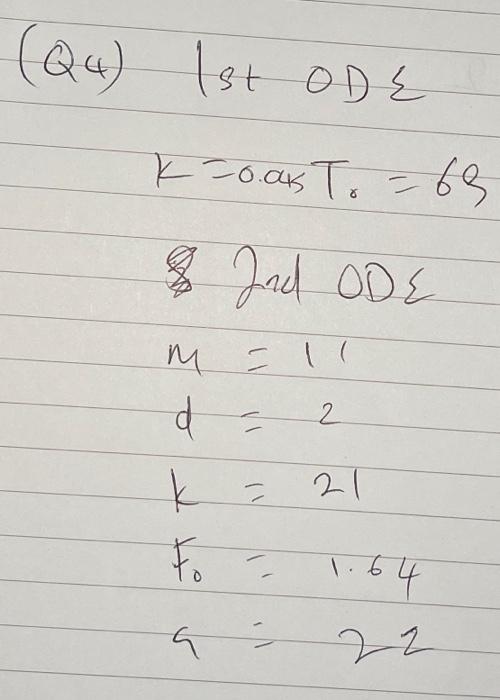 (Q4) 1st ODE
K = 0.045 T₀ = 69
2nd ODE
m = 11
d = 2
k = 21
F₀ = 1.64
a = 22